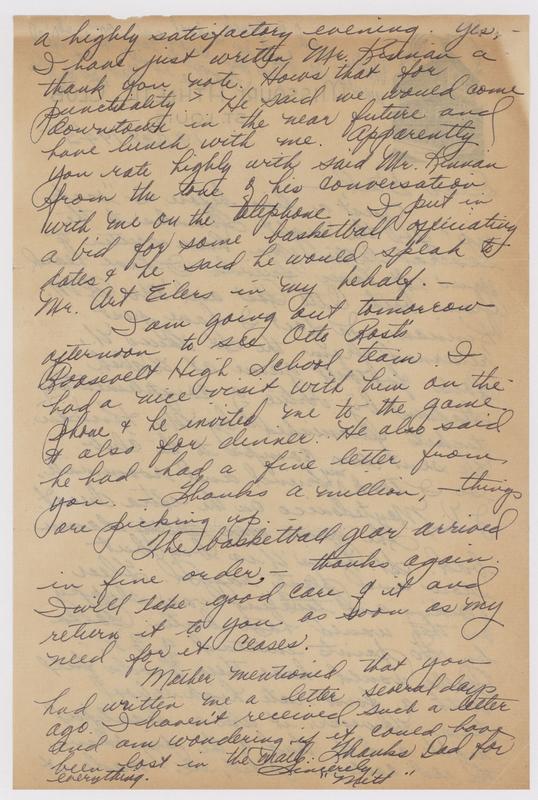 a highly satisfactory evening. Yes, -
I have just written Mr. Kinnan a
thank you note. Hows that for
punctuality? He said we would come
downtown in the near future and
have lunch with me. Apparently
you rate highly with said Mr. Kinnan
from the tone of his conversation
with me on the telephone. I put in
a bid for some basketball officiating
dates & he said he would speak to
Mr. Art Eilers in my behalf. -
I am going out tomorrow
afternoon to see Otto Rost's
Roosevelt High School team. I
had a nice visit with him on the
phone & he invited me to the game
& also for dinner. He also said
he had had a fine letter from
you. - Thanks a million, - things
are picking up.
The basketball gear arrived
in fine order, - thanks again.
I will take good care of it and
return it to you as soon as my
need for it ceases.
Mother mentioned that you
had written me a letter several days
ago. I haven't received such a letter
and am wondering if it could have
been lost in the mail. Thanks Dad for
everything. Sincerely,
"Milt"